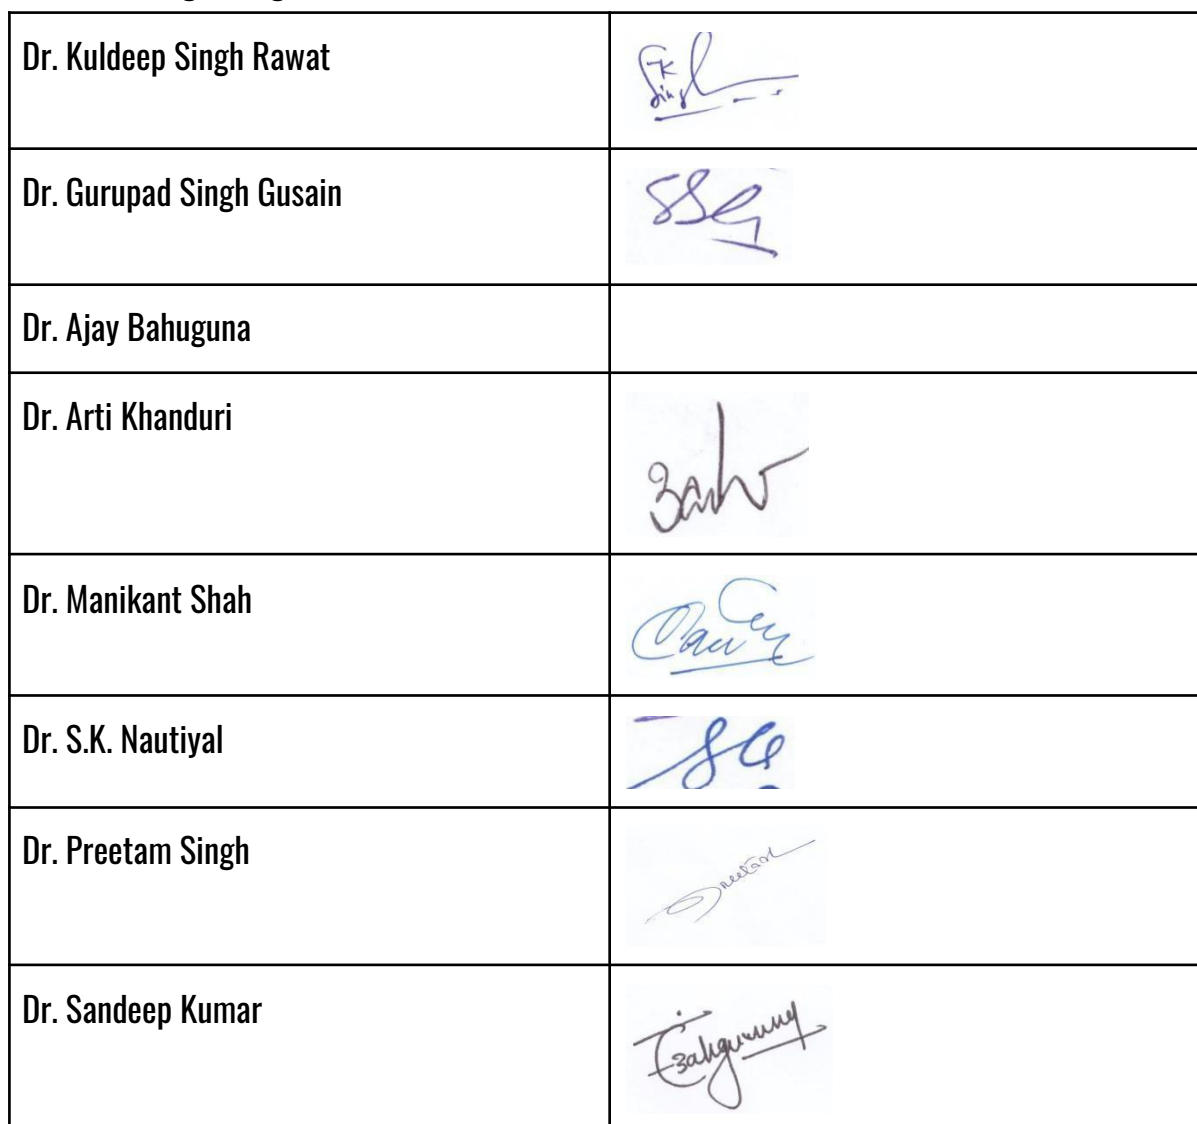 Dr. Kuldeep Singh Rawat
K
Singh
Dr. Gurupad Singh Gusain
SSG
Dr. Ajay Bahuguna
Dr. Arti Khanduri
Dr. Manikant Shah
Dr. S.K. Nautiyal
Dr. Preetam Singh
Preetam
Dr. Sandeep Kumar